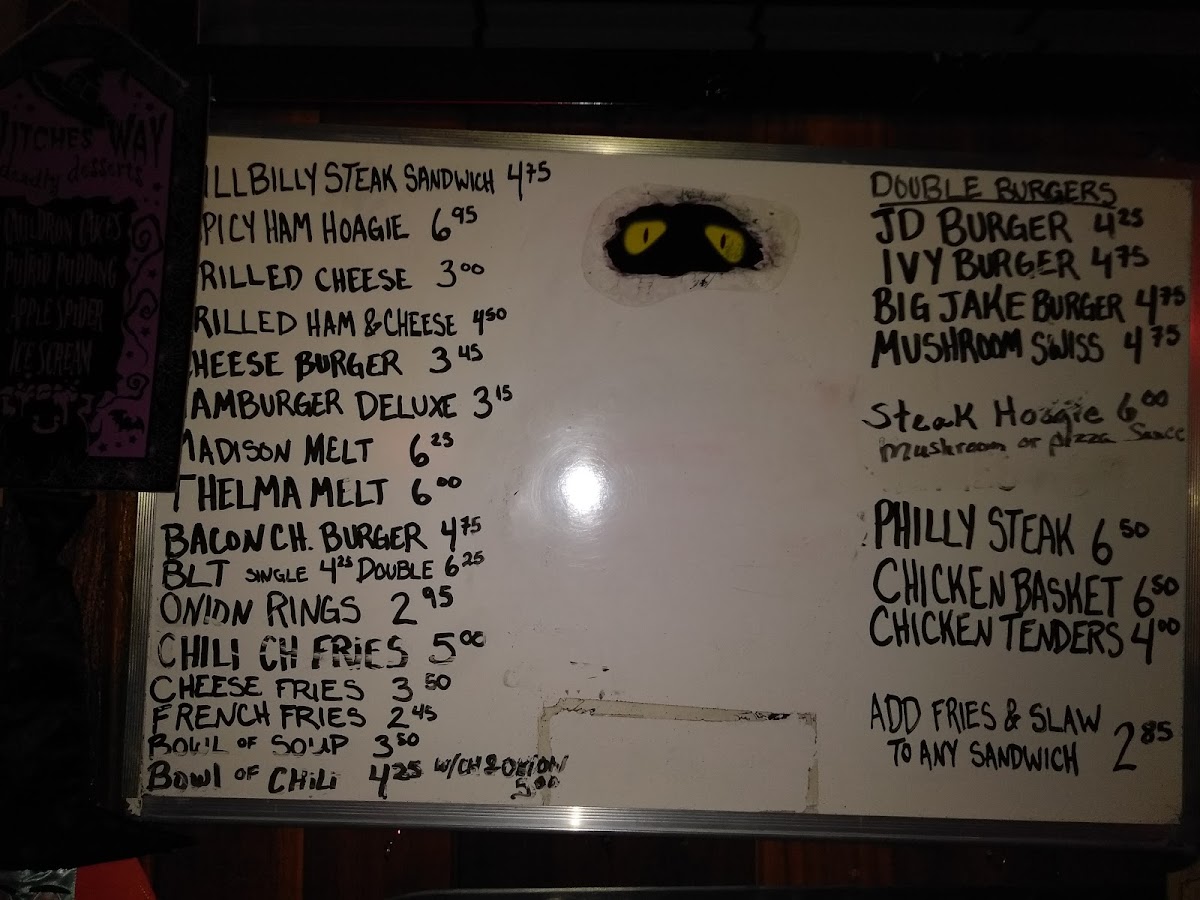 ITCHES' WAY
deadly desserts
CAULDRON CAKES
PUTRID PUDDING
APPLE SPIDER
ICE SCREAM
ILLBILLY STEAK SANDWICH 4.75
PICY HAM HOAGIE 6.95
RILLED CHEESE 3.00
RILLED HAM & CHEESE 4.50
HEESE BURGER 3.45
AMBURGER DELUXE 3.15
MADISON MELT 6.25
THELMA MELT 6.00
BACON CH. BURGER 4.75
BLT SINGLE 4.25 DOUBLE 6.25
ONION RINGS 2.95
CHILI CH FRIES 5.00
CHEESE FRIES 3.50
FRENCH FRIES 2.45
BOWL OF SOUP 3.50
BOWL OF CHILI 4.25 W/CH & ONION 5.00
DOUBLE BURGERS
JD BURGER 4.25
IVY BURGER 4.75
BIG JAKE BURGER 4.75
MUSHROOM SWISS 4.75
Steak Hoagie 6.00
Mushroom or pizza Sauce
PHILLY STEAK 6.50
CHICKEN BASKET 6.50
CHICKEN TENDERS 4.00
ADD FRIES & SLAW
TO ANY SANDWICH 2.85